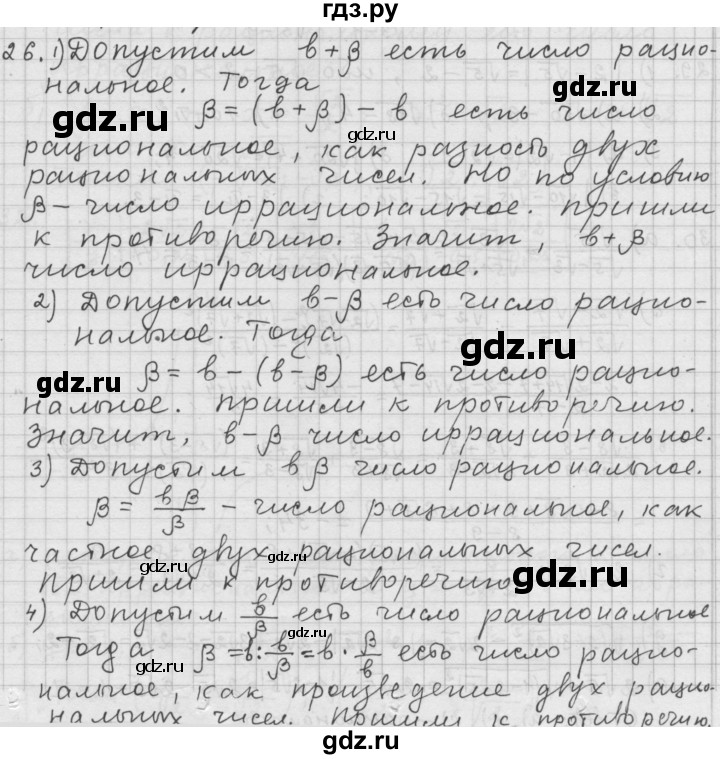 гдз.ру
26. 1) Допустим в+β есть число рацио-
нальное. Тогда
β = (в+β) − в есть число
gdz.ru gdz.ru
рациональное, как разность двух
рациональных чисел. Но по условию
β − число иррациональное. Пришли
к противоречию. Значит, в+β
число иррациональное.
2) Допустим в−β есть число рацио-
нальное. Тогда
gdz.ru
β = в − (в−β) есть число рацио-
gdz.ru
нальное. Пришли к противоречию.
Значит, в−β число иррациональное.
3) Допустим вβ число рациональное.
β = вβ/β − число рациональное, как
частное двух рациональных чисел.
gdz.ru
Пришли к противоречию
gdz.ru
4) Допустим в/β есть число рациональное
gdz.ru
Тогда β = в : в/β = в · β/в есть число рацио-
gdz.ru
нальное, как произведение двух рацио-
нальных чисел. Пришли к противоречию.
gdz.ru